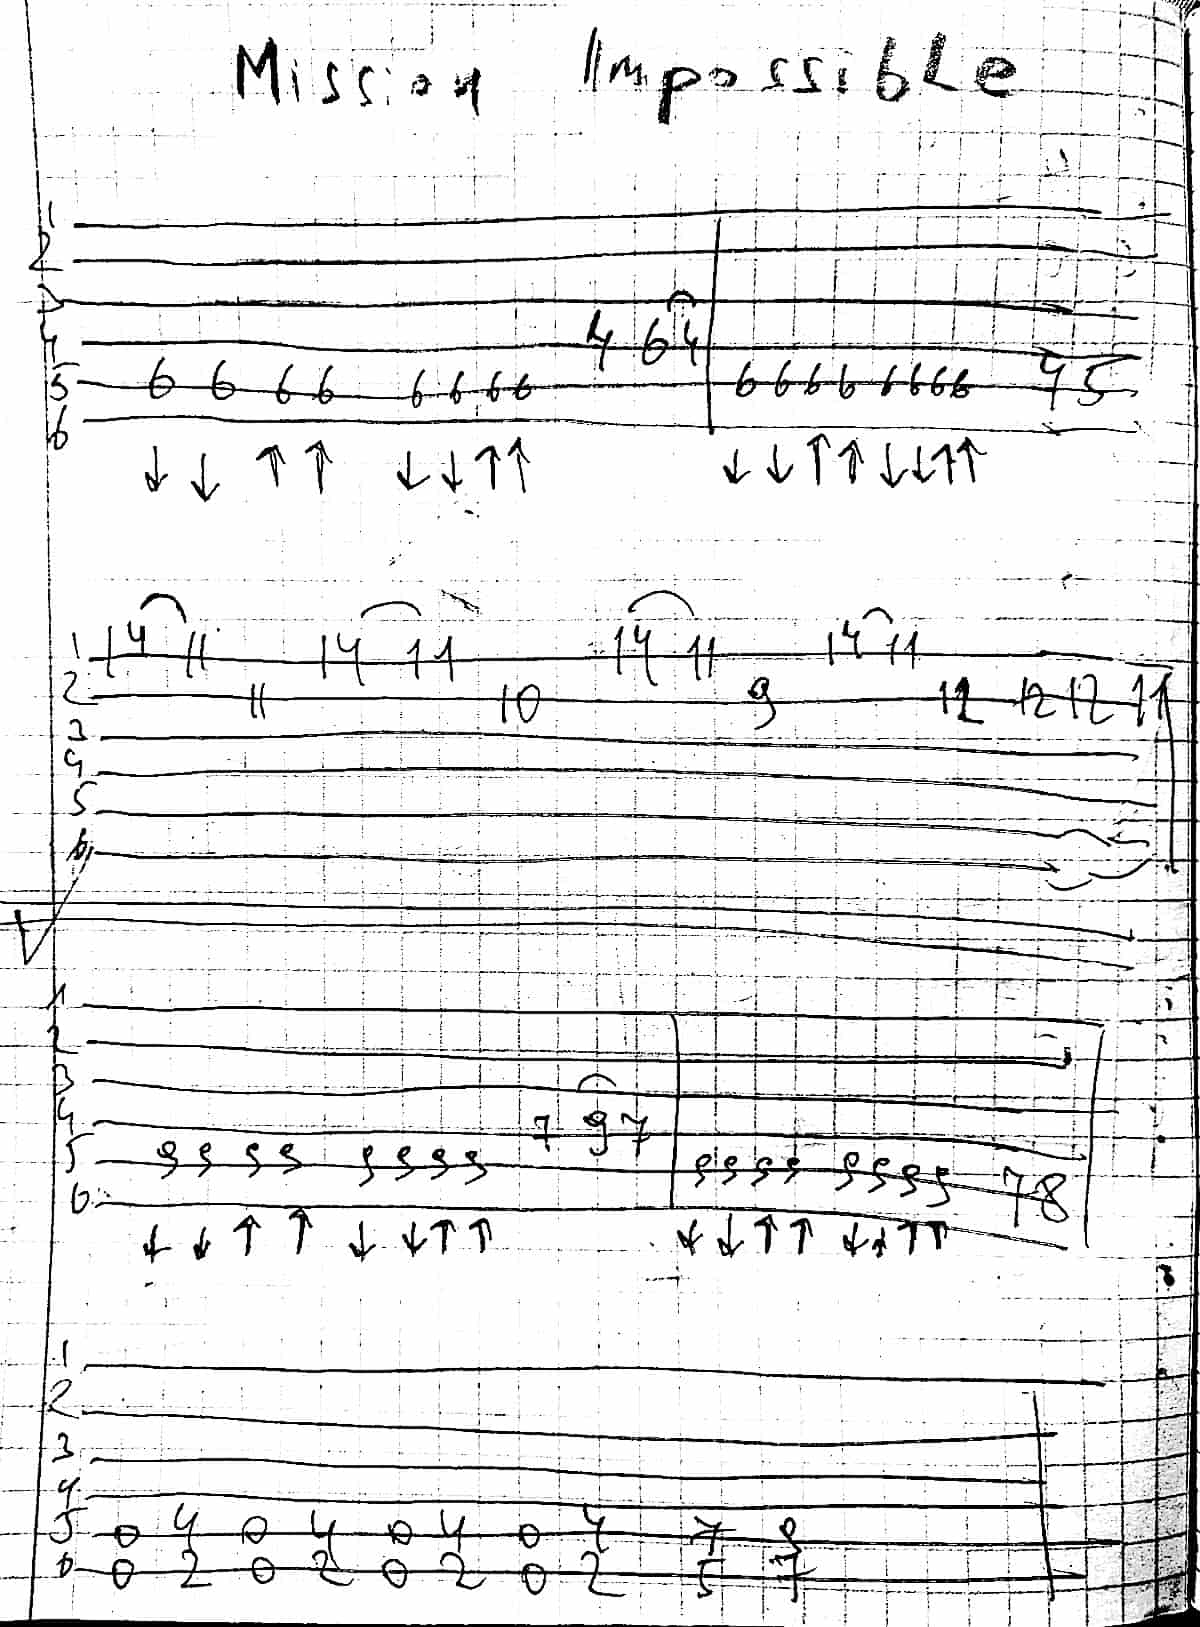 Mission Impossible
1
2
3
4 4 6 4
5 6 6 6 6 6 6 6 6 6 6 6 6 6 6 6 6 4 5
6
↓ ↓ ↑ ↑ ↓ ↓ ↑ ↑ ↓ ↓ ↑ ↑ ↓ ↓ ↑ ↑
1 14 11 14 11 14 11 14 11
2 11 10 9 12 12 12 11
3
4
5
6
1
2
3
4 7 9 7
5 9 9 9 9 9 9 9 9 9 9 9 9 9 9 9 9 7 8
6
↓ ↓ ↑ ↑ ↓ ↓ ↑ ↑ ↓ ↓ ↑ ↑ ↓ ↑ ↑ ↑
1
2
3
4
5 0 4 0 4 0 4 0 4 7 9
6 0 2 0 2 0 2 0 2 5 7